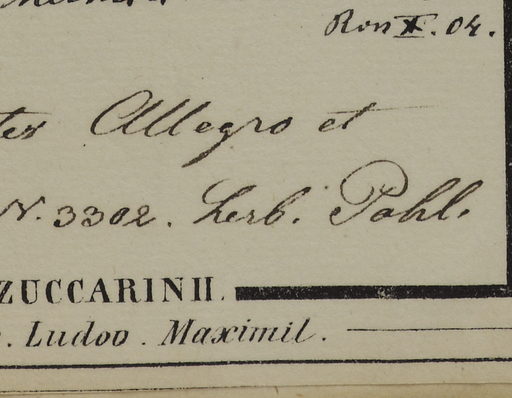 Ron X. 04.
tes Allegro et
N. 3302. Herb. Pohl.
ZUCCARINII.
. Ludov. Maximil.